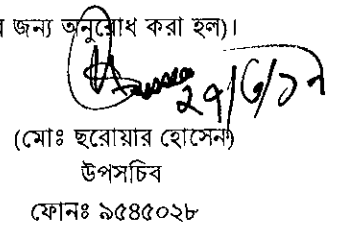 জন্য অনুরোধ করা হল)।
২৭/৬/১৭
(মোঃ ছরোয়ার হোসেন)
উপসচিব
ফোনঃ ৯৫৪৫০২৮